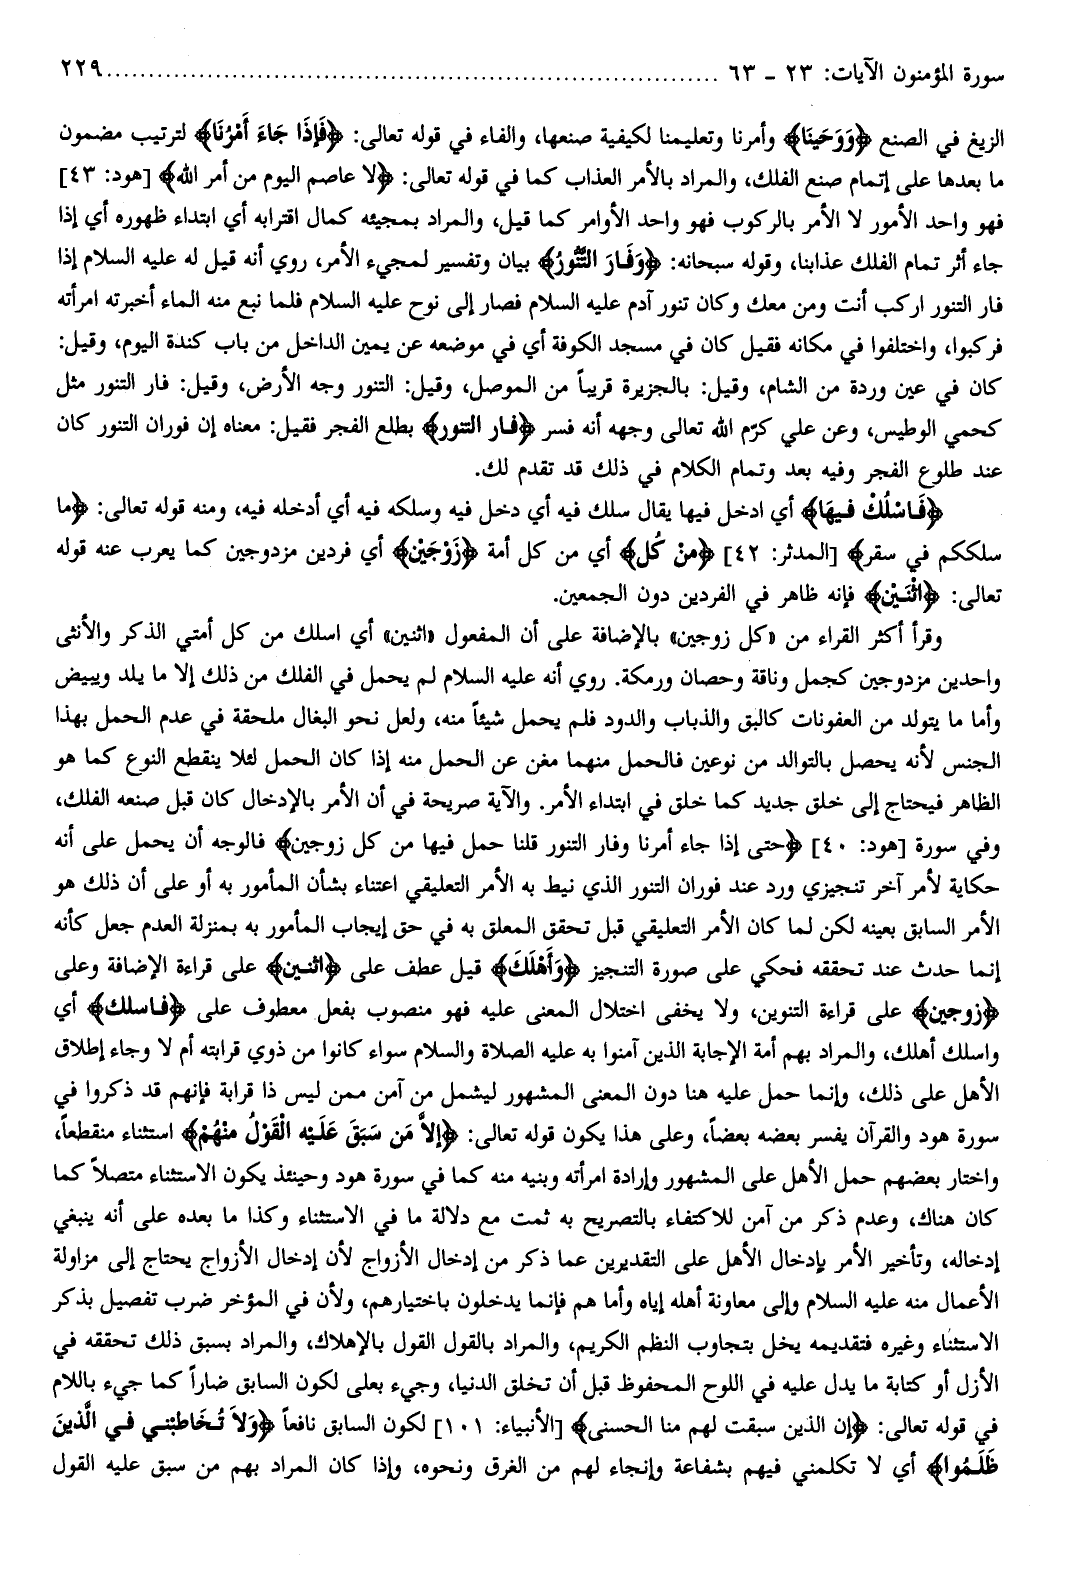 سورة المؤمنون الآيات: ٢٣ - ٦٣ ........................................................................ ٢٢٩
الزيغ في الصنع ﴿وَوَحْيِنَا﴾ وأمرنا وتعليمنا لكيفية صنعها، والفاء في قوله تعالى: ﴿فَإِذَا جَاءَ أَمْرُنَا﴾ لترتيب مضمون
ما بعدها على إتمام صنع الفلك، والمراد بالأمر العذاب كما في قوله تعالى: ﴿لا عاصم اليوم من أمر الله﴾ [هود: ٤٣]
فهو واحد الأمور لا الأمر بالركوب فهو واحد الأوامر كما قيل، والمراد بمجيئه كمال اقترابه أي ابتداء ظهوره أي إذا
جاء أثر تمام الفلك عذابنا، وقوله سبحانه: ﴿وَفَارَ التَّنُّورُ﴾ بيان وتفسير لمجيء الأمر، روي أنه قيل له عليه السلام إذا
فار التنور اركب أنت ومن معك وكان تنور آدم عليه السلام فصار إلى نوح عليه السلام فلما نبع منه الماء أخبرته امرأته
فركبوا، واختلفوا في مكانه فقيل كان في مسجد الكوفة أي في موضعه عن يمين الداخل من باب كندة اليوم، وقيل:
كان في عين وردة من الشام، وقيل: بالجزيرة قريباً من الموصل، وقيل: التنور وجه الأرض، وقيل: فار التنور مثل
كحمي الوطيس، وعن علي كرّم الله تعالى وجهه أنه فسر ﴿فار التنور﴾ بطلع الفجر فقيل: معناه إن فوران التنور كان
عند طلوع الفجر وفيه بعد وتمام الكلام في ذلك قد تقدم لك.
﴿فَاسْلُكْ فِيهَا﴾ أي ادخل فيها يقال سلك فيه أي دخل فيه وسلكه فيه أي أدخله فيه، ومنه قوله تعالى: ﴿ما
سلككم في سقر﴾ [المدثر: ٤٢] ﴿مِنْ كُل﴾ أي من كل أمة ﴿زَوْجَيْنِ﴾ أي فردين مزدوجين كما يعرب عنه قوله
تعالى: ﴿اثْنَيْنِ﴾ فإنه ظاهر في الفردين دون الجمعين.
وقرأ أكثر القراء من «كل زوجين» بالإضافة على أن المفعول «اثنين» أي اسلك من كل أمتي الذكر والأنثى
واحدين مزدوجين كجمل وناقة وحصان ورمكة. روي أنه عليه السلام لم يحمل في الفلك من ذلك إلا ما يلد ويبيض
وأما ما يتولد من العفونات كالبق والذباب والدود فلم يحمل شيئاً منه، ولعل نحو البغال ملحقة في عدم الحمل بهذا
الجنس لأنه يحصل بالتوالد من نوعين فالحمل منهما مغن عن الحمل منه إذا كان الحمل لئلا ينقطع النوع كما هو
الظاهر فيحتاج إلى خلق جديد كما خلق في ابتداء الأمر. والآية صريحة في أن الأمر بالإدخال كان قبل صنعه الفلك،
وفي سورة [هود: ٤٠] ﴿حتى إذا جاء أمرنا وفار التنور قلنا حمل فيها من كل زوجين﴾ فالوجه أن يحمل على أنه
حكاية لأمر آخر تنجيزي ورد عند فوران التنور الذي نيط به الأمر التعليقي اعتناء بشأن المأمور به أو على أن ذلك هو
الأمر السابق بعينه لكن لما كان الأمر التعليقي قبل تحقق المعلق به في حق إيجاب المأمور به بمنزلة العدم جعل كأنه
إنما حدث عند تحققه فحكي على صورة التنجيز ﴿وَأَهْلَكَ﴾ قيل عطف على ﴿اثنين﴾ على قراءة الإضافة وعلى
﴿زوجين﴾ على قراءة التنوين، ولا يخفى اختلال المعنى عليه فهو منصوب بفعل معطوف على ﴿فاسلك﴾ أي
واسلك أهلك، والمراد بهم أمة الإجابة الذين آمنوا به عليه الصلاة والسلام سواء كانوا من ذوي قرابته أم لا وجاء إطلاق
الأهل على ذلك، وإنما حمل عليه هنا دون المعنى المشهور ليشمل من آمن ممن ليس ذا قرابة فإنهم قد ذكروا في
سورة هود والقرآن يفسر بعضه بعضاً، وعلى هذا يكون قوله تعالى: ﴿إلاَّ مَن سَبَقَ عَلَيْهِ الْقَوْلُ مِنْهُمْ﴾ استثناء منقطعاً،
واختار بعضهم حمل الأهل على المشهور وإرادة امرأته وبنيه منه كما في سورة هود وحينئذ يكون الاستثناء متصلاً كما
كان هناك، وعدم ذكر من آمن للاكتفاء بالتصريح به ثمت مع دلالة ما في الاستثناء وكذا ما بعده على أنه ينبغي
إدخاله، وتأخير الأمر بإدخال الأهل على التقديرين عما ذكر من إدخال الأزواج لأن إدخال الأزواج يحتاج إلى مزاولة
الأعمال منه عليه السلام وإلى معاونة أهله إياه وأما هم فإنما يدخلون باختيارهم، ولأن في المؤخر ضرب تفصيل بذكر
الاستثناء وغيره فتقديمه يخل بتجاوب النظم الكريم، والمراد بالقول القول بالإهلاك، والمراد بسبق ذلك تحققه في
الأزل أو كتابة ما يدل عليه في اللوح المحفوظ قبل أن تخلق الدنيا، وجيء بعلى لكون السابق ضاراً كما جيء باللام
في قوله تعالى: ﴿إن الذين سبقت لهم منا الحسنى﴾ [الأنبياء: ١٠١] لكون السابق نافعاً ﴿وَلاَ تُخَاطِبْني في الَّذينَ
ظَلَمُوا﴾ أي لا تكلمني فيهم بشفاعة وإنجاء لهم من الغرق ونحوه، وإذا كان المراد بهم من سبق عليه القول